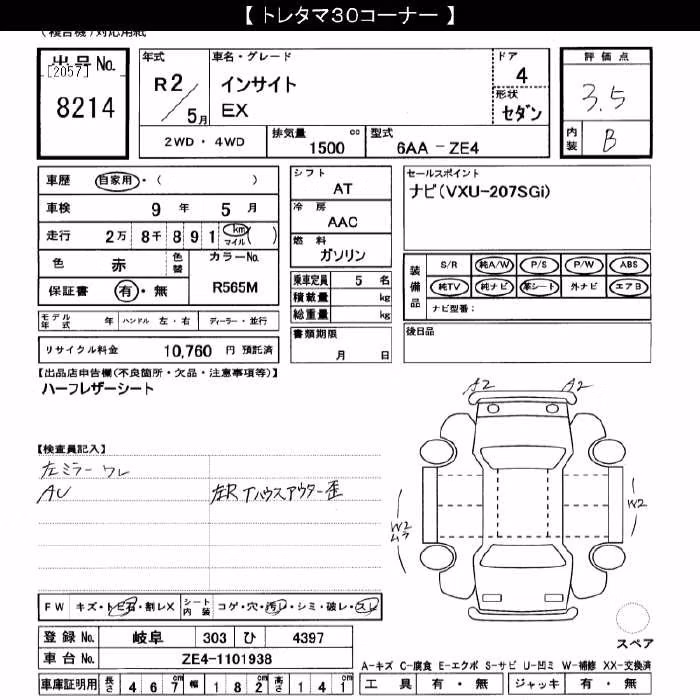 【 トレタマ30コーナー 】
(複合機)対応用紙
出品 No.
[2057]
8214
年式
R2/5月
車名・グレード
インサイト
EX
ドア
4
形状
セダン
評価点
3.5
内装
B
2WD・4WD
排気量 1500 cc
型式 6AA－ZE4
車歴 自家用・( )
車検 9年 5月
走行 2万 8千 8 9 1 km マイル ( )
色 赤 色替 カラーNo.
保証書 有・無 R565M
シフト
AT
冷房
AAC
燃料
ガソリン
乗車定員 5 名
積載量 kg
総重量 kg
書類期限
月 日
セールスポイント
ナビ(VXU-207SGi)
装備品
S/R 純A/W P/S P/W ABS
純TV 純ナビ 革シート 外ナビ エアB
ナビ型番：
後日品
モデル年式 年 ハンドル 左・右 ディーラー・並行
リサイクル料金 10,760 円 預託済
【出品店申告欄(不良箇所・欠品・注意事項等)】
ハーフレザーシート
【検査員記入】
左ミラー ワレ
AU
左R Tハウスアウター歪
A2 A2
W2
W2
FW キズ・トビ石・割レX シート内装 コゲ・穴・汚レ・シミ・破レ・スレ
登録 No. 岐阜 303 ひ 4397
車台 No. ZE4-1101938
車庫証明用 長さ 4 6 7 cm 幅 1 8 2 cm 高さ 1 4 1 cm
スペア
A-キズ C-腐食 E-エクボ S-サビ U-凹ミ W-補修 XX-交換済
工具 有・無 ジャッキ 有・無